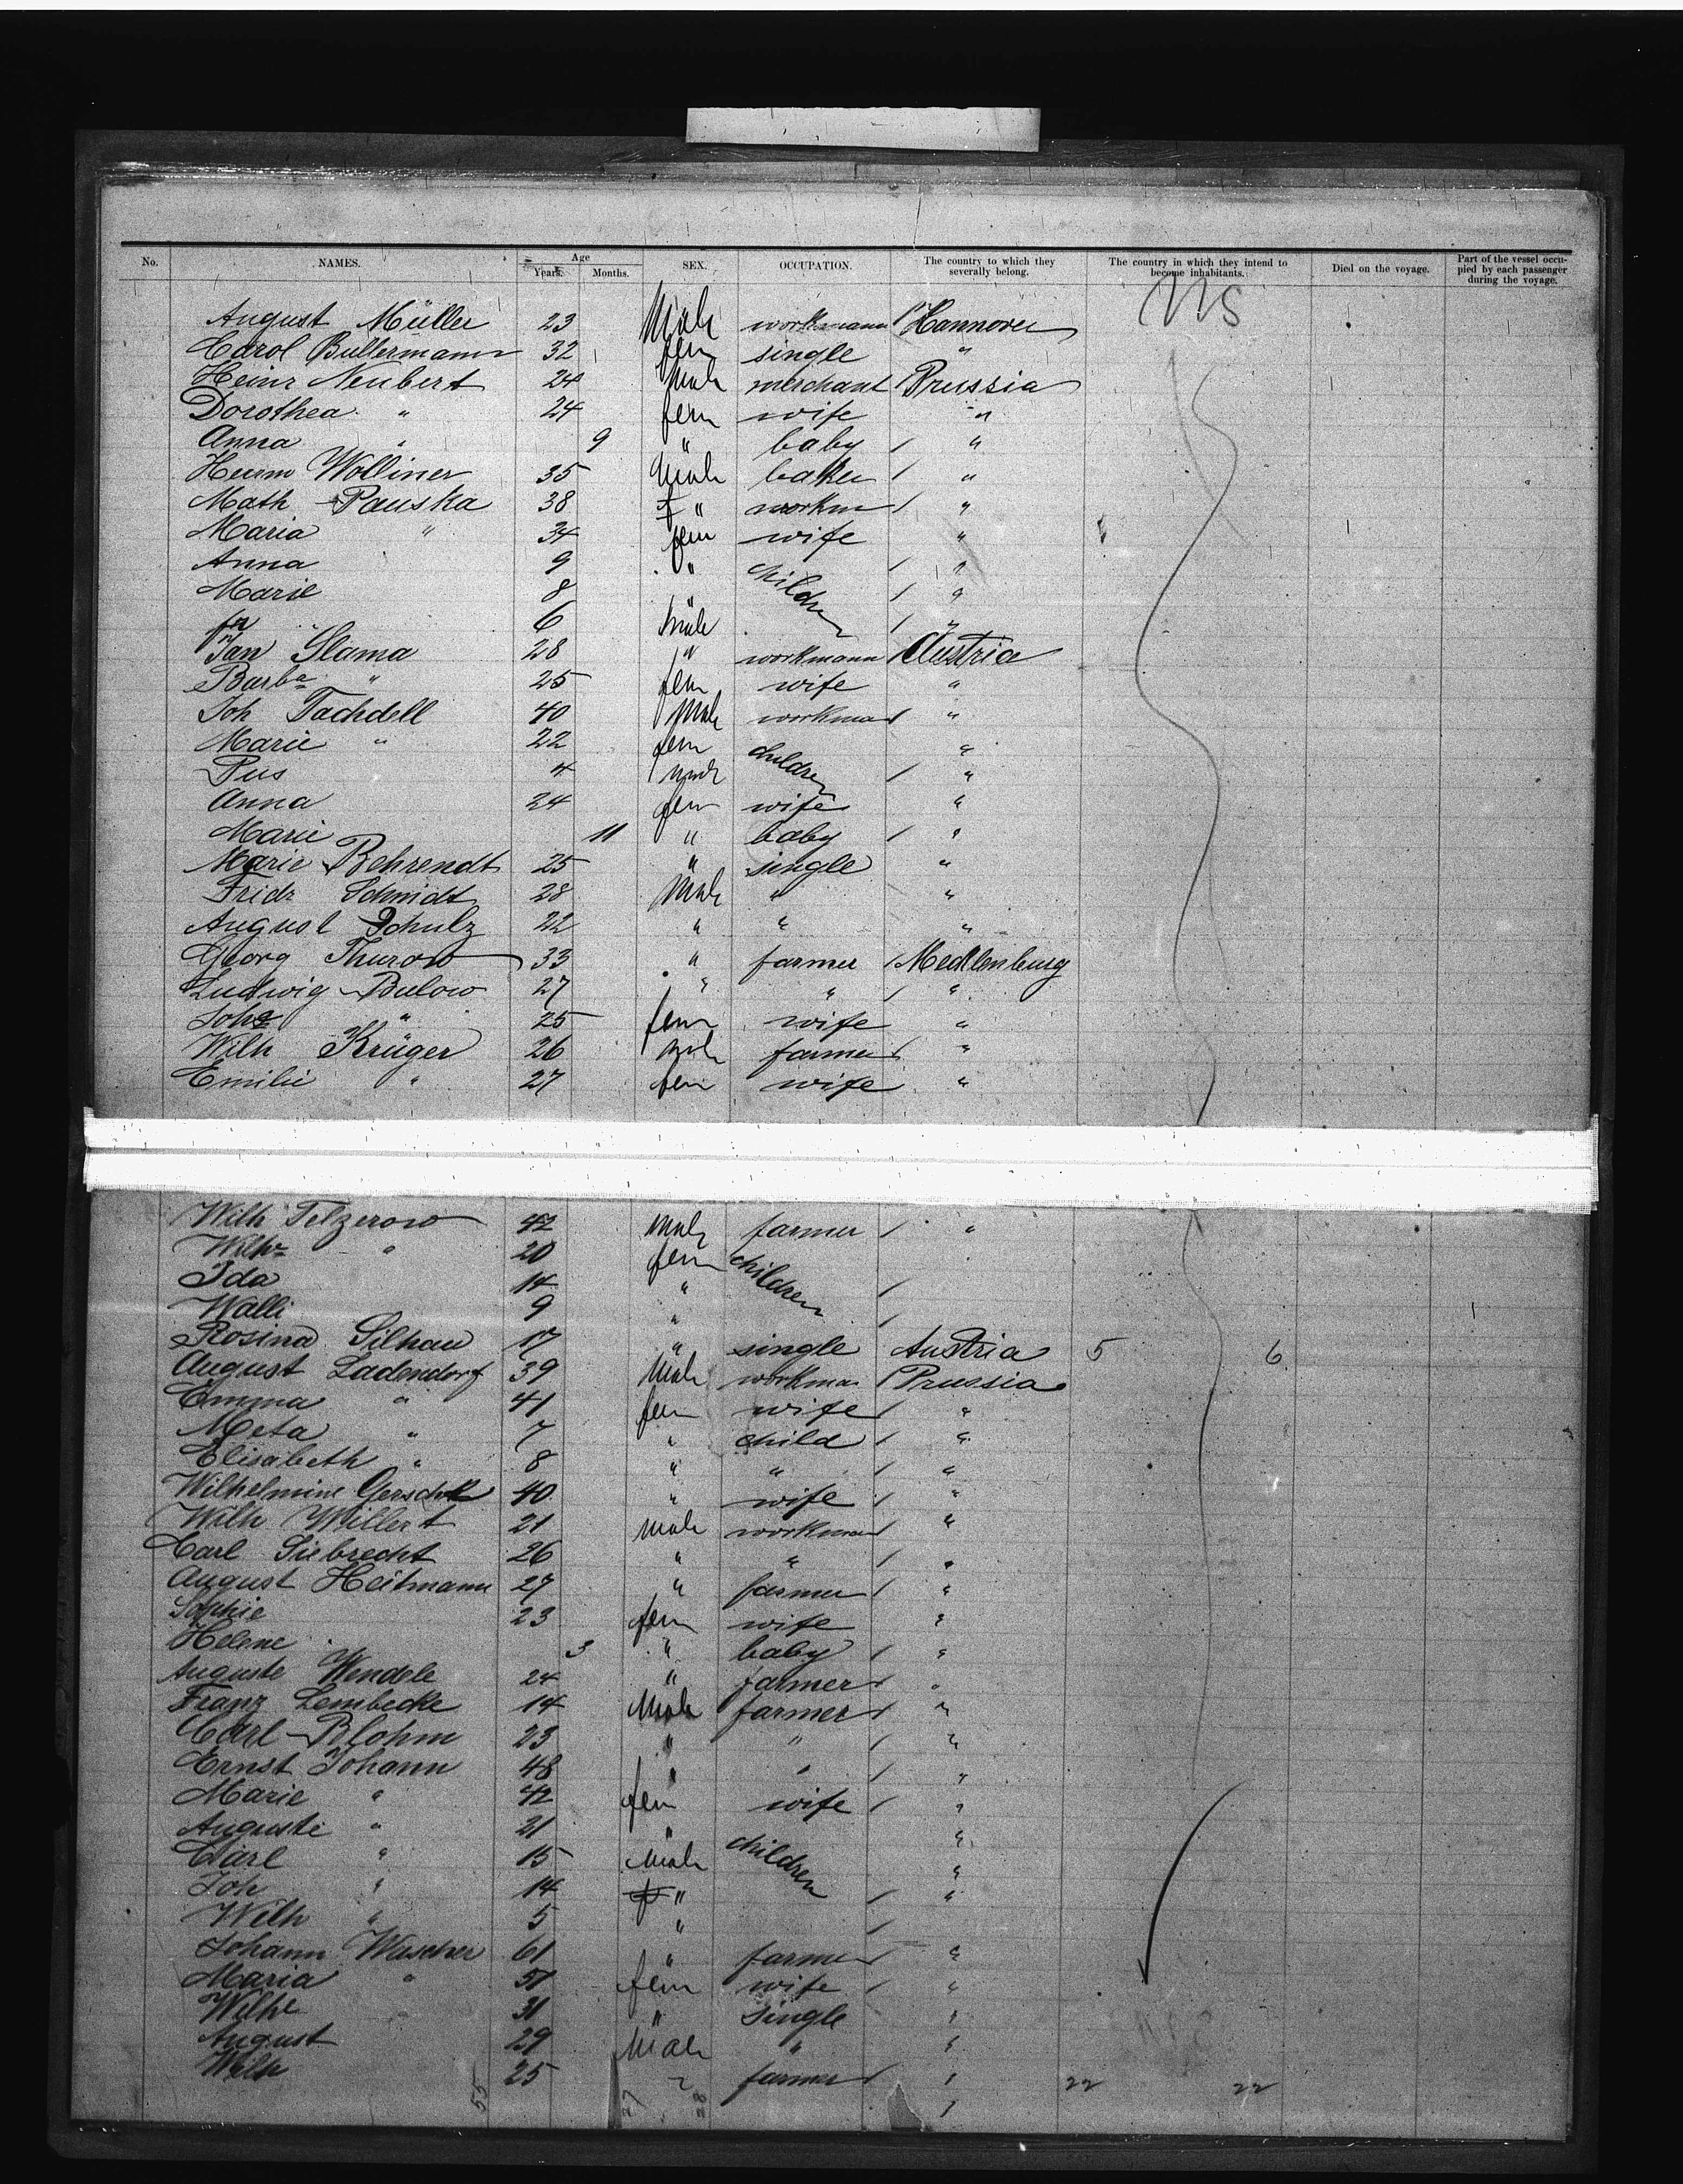 No. NAMES. Age Years. Months. SEX. OCCUPATION. The country to which they severally belong. The country in which they intend to become inhabitants. Died on the voyage. Part of the vessel occupied by each passenger during the voyage.
August Müller 23 Male workmann Hannover US
Carol Bullermann 32 fem single "
Heinr Neubert 24 Male merchant Prussia
Dorothea " 24 fem wife "
Anna " 9 " baby "
Herm Wolliner 35 Male baker "
Math Pauska 38 " workm "
Maria " 34 fem wife "
Anna 9 " children "
Marie 8 " "
6 Male "
Jan Slama 28 " workmann Austria
Barba " 25 fem wife "
Joh Tachdell 40 Male workman "
Marie " 22 fem children "
Pus 4 male "
Anna 24 fem wife "
Marie 11 " baby "
Marie Behrendt 25 " single "
Fridr Schmidt 28 Male " "
August Schulz 22 " " "
Georg Thurow 33 " farmer Mecklenburg
Ludwig Bulow 27 " " "
Joh " 25 fem wife "
Wilh Krüger 26 Male farmer "
Emilie " 27 fem wife "
Wilh Telzerow 42 Male farmer "
Wilhe " 20 fem children
Ida 14 "
Walli 9 "
Rosina Silhau 17 " single Austria 5 6
August Ladendorf 39 Male workman Prussia
Emma " 41 fem wife "
Meta " 7 " child "
Elisabeth " 8 " " "
Wilhelmine 40 " wife "
Wilh Willert 21 Male workman "
Carl Siebrecht 26 " " "
August Heitmann 27 " farmer "
Sophie 23 fem wife "
Helene 3 " baby "
Auguste Wendele 24 " farmer "
Franz Lembecke 14 Male farmer "
Carl Blohm 23 " " "
Ernst Johann 48 " " "
Marie " 42 fem wife "
Auguste " 21 " children "
Carl " 15 Male "
Joh " 14 " "
Wilh " 5 "
Johann Wascher 61 " farmer "
Maria " 51 fem wife "
Wilhe 31 " single "
August 29 Male " "
Wilh 25 " farmer " 22 22
55 27 28